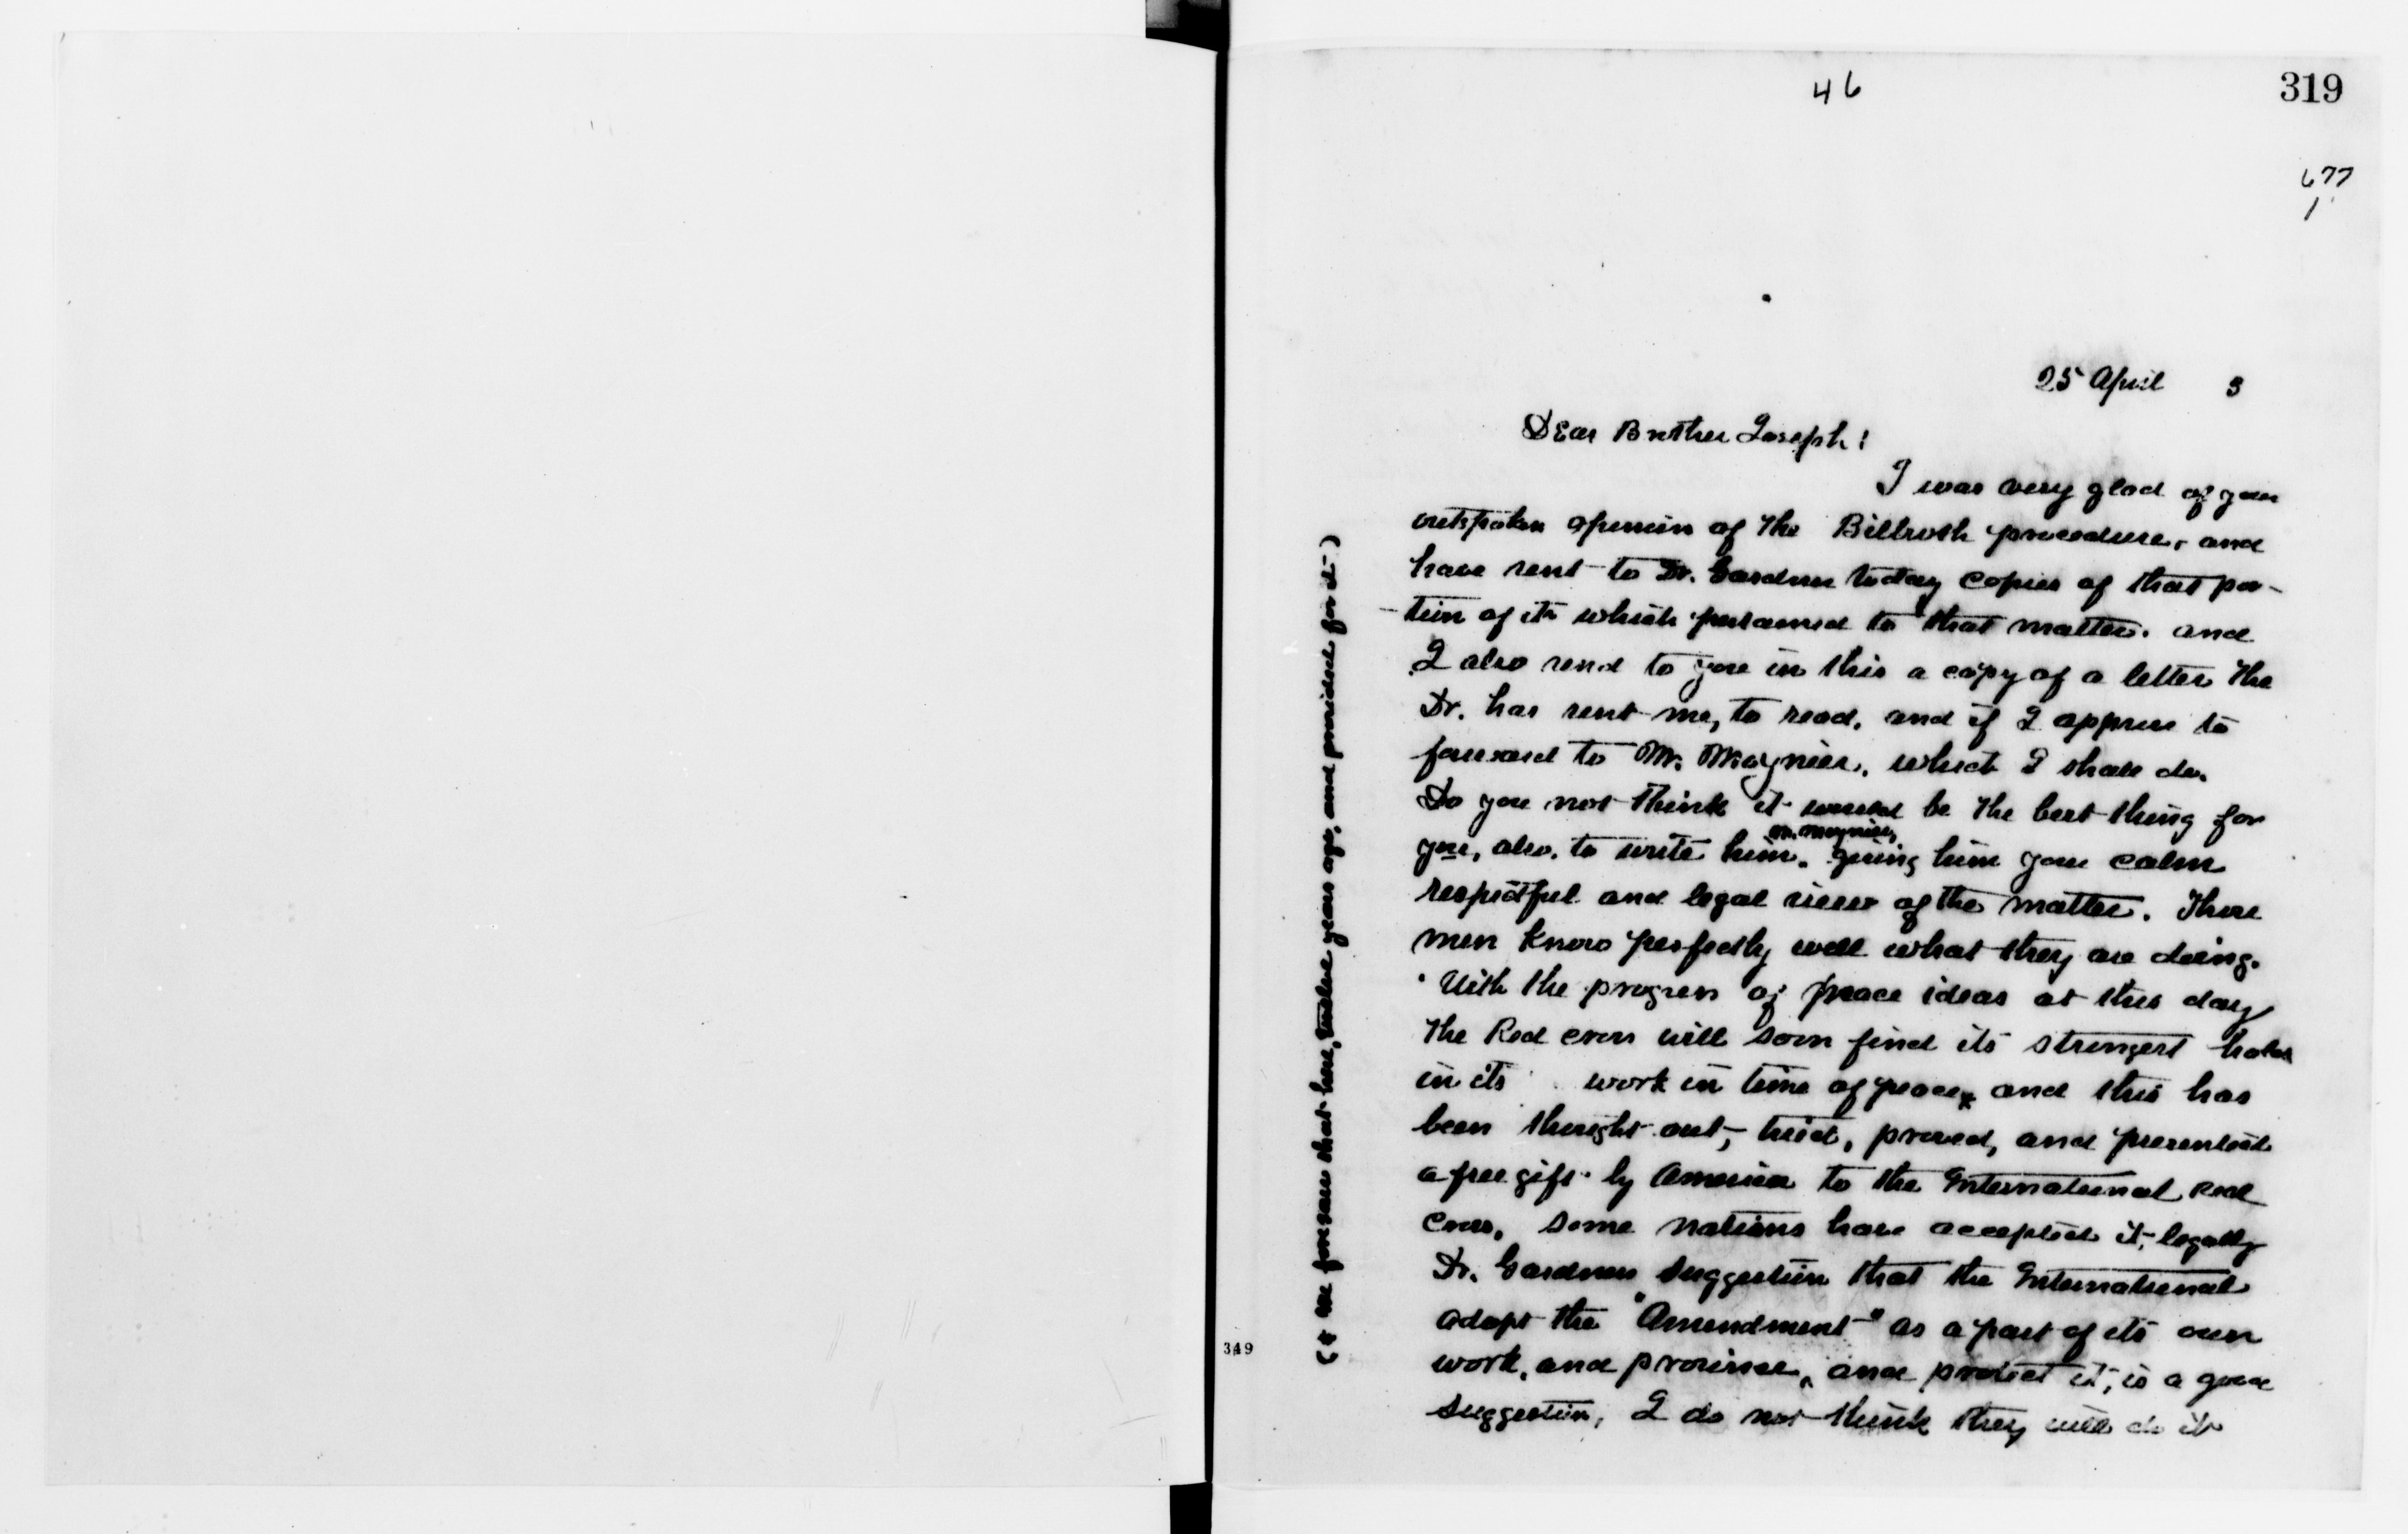 46
319
677
1
25 April 3
Dear Brother Joseph!
I was very glad of your
outspoken openion of the Billroth procedure, and
have sent to Dr. Gardner today copies of that por-
-tion of it which pertained to that matter. and
I also send to you in this a copy of a letter the
Dr. has sent me, to read, and if I approve to
forward to Mr. Moynier, which I shall do.
Do you not think it would be the best thing for
you, also, to write him, Mr. Moynier, giving him your calm
respectful and legal view of the matter. These
men know perfectly well what they are doing.
With the progress of peace ideas at this day
the Red cross will soon find its strongest hold
in its work in time of peace, and this has
been thought out, tried, proved, and presented
a free gift by America to the International Red
Cross, some nations have accepted it, legally
Dr. Gardners suggestion that the International
adopt the "Amendment" as a part of its own
work, and province, and protect it, is a good
suggestion, I do not think they will do it
(& we foresaw that here, twelve years ago, and provided for it-)
349